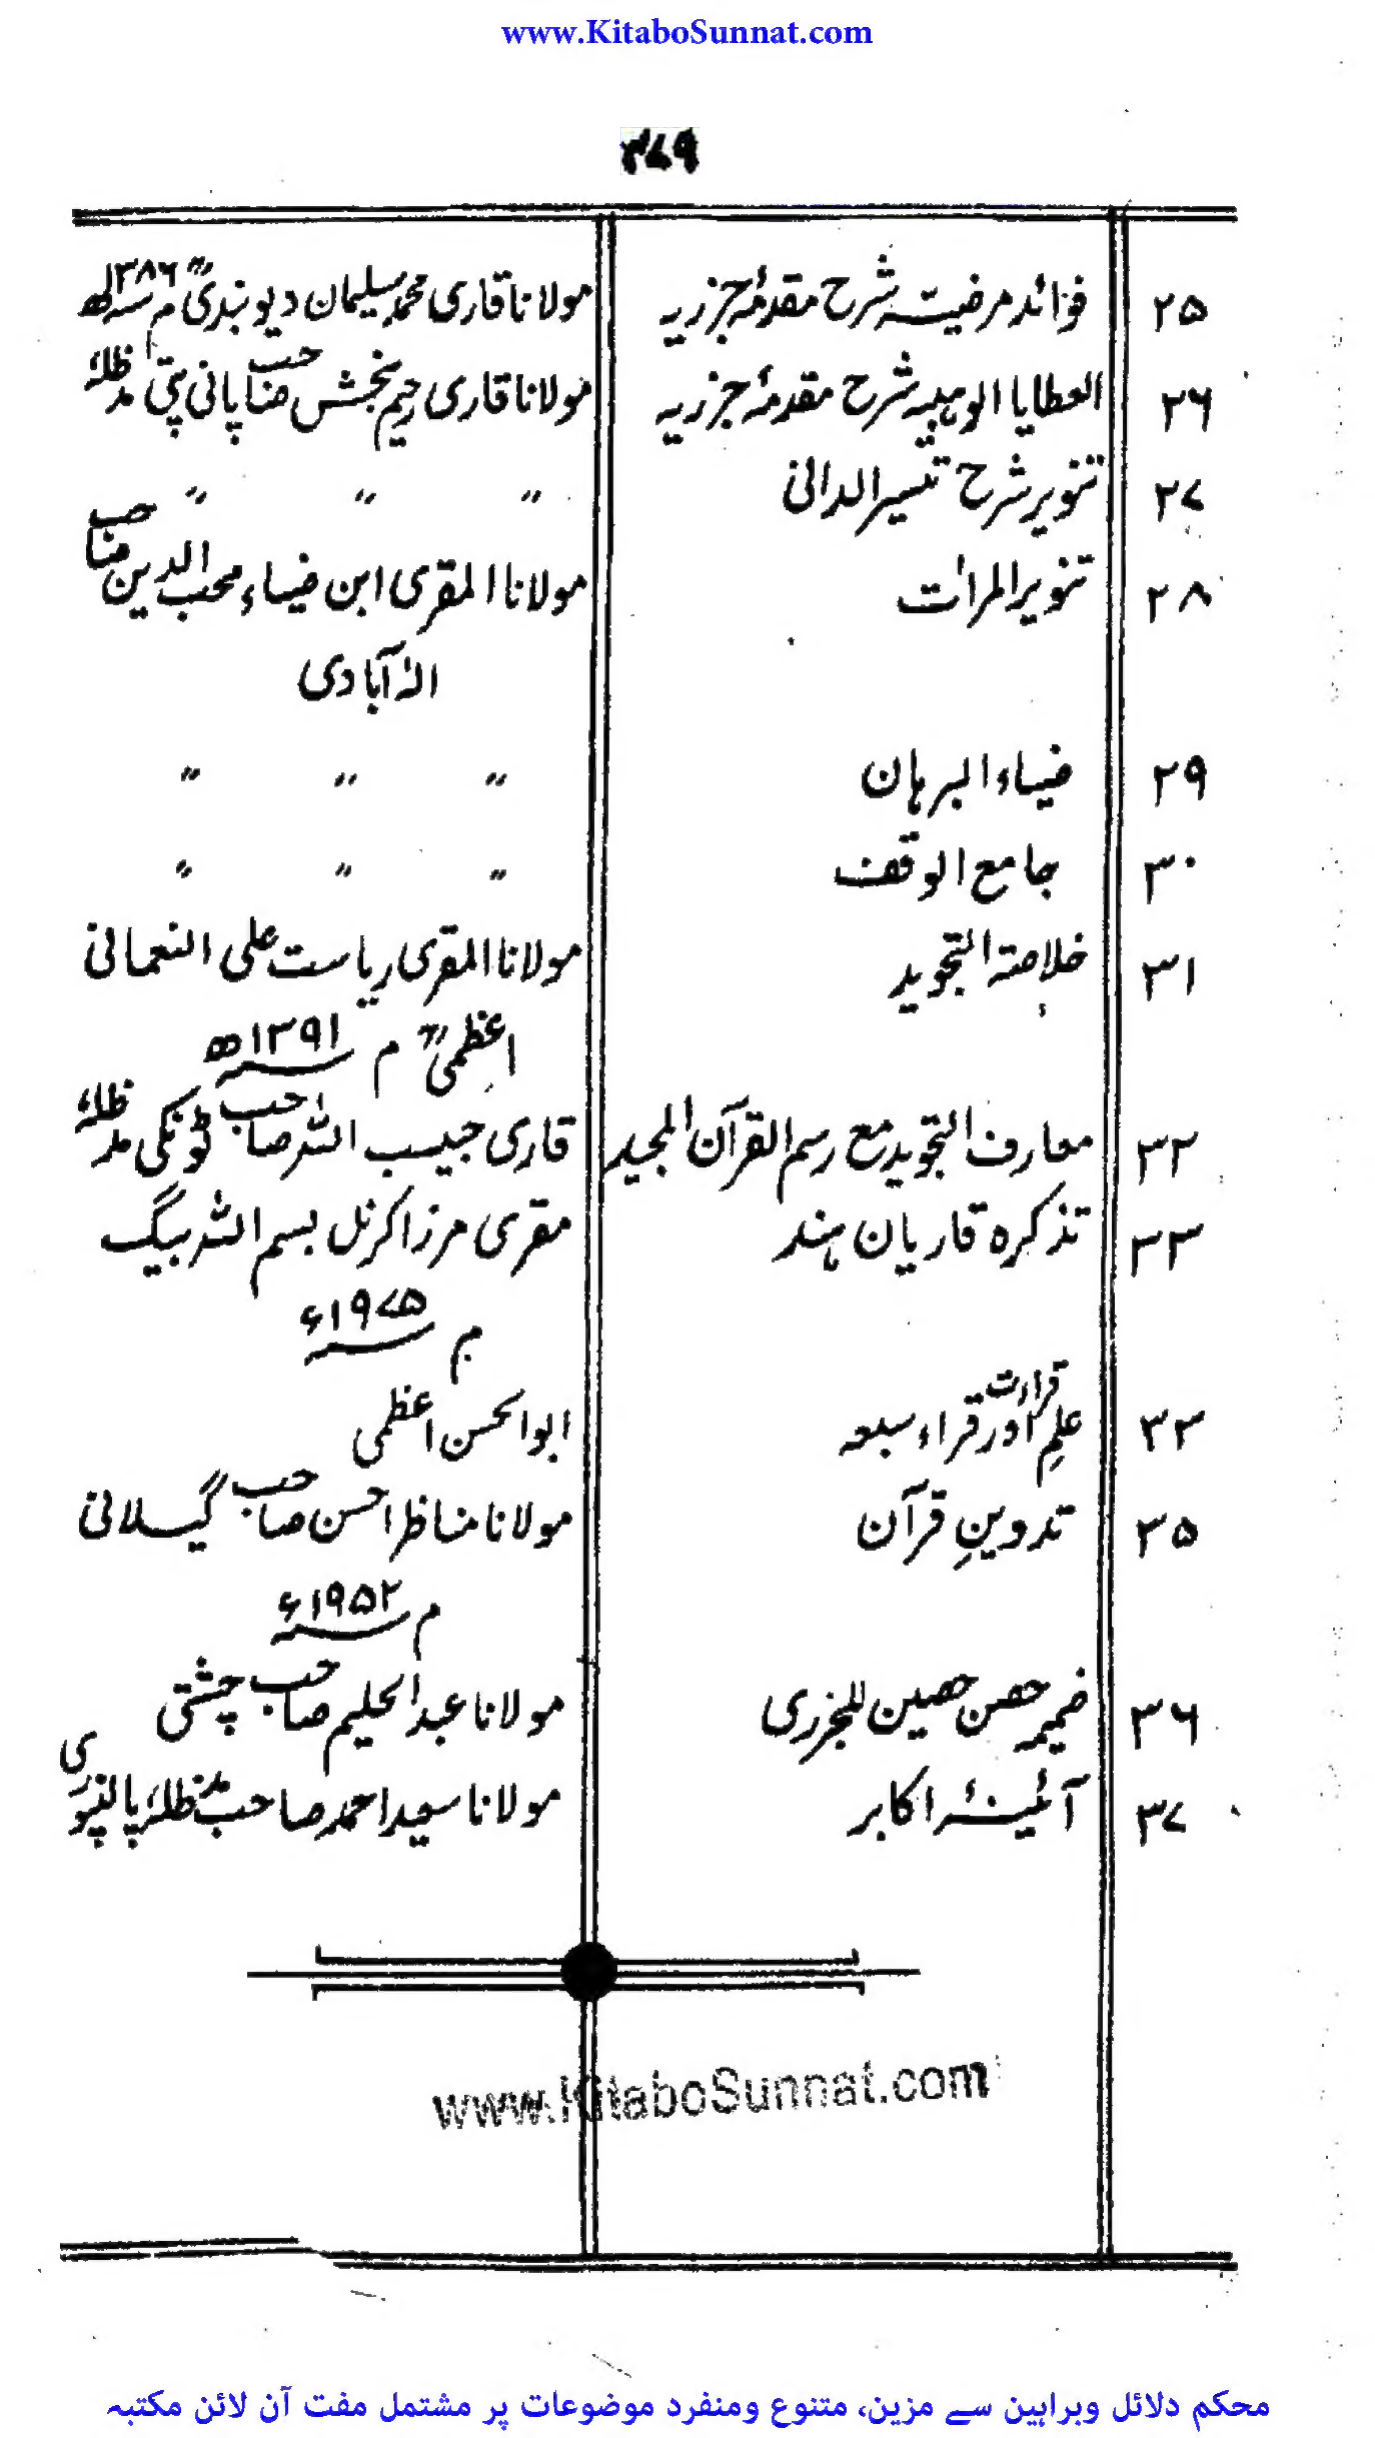 www.KitaboSunnat.com
۳۷۹
۲۵ فوائد مرضیتہ شرح مقدمۂ جزریہ مولانا قاری محمد سلیمان دیوبندیؒ م سنہ ۱۳۸۶ھ
۲۶ العطایا الوہبیہ شرح مقدمۂ جزریہ مولانا قاری رحیم بخش صاحب پانی پتی مدظلہٗ
۲۷ تنویر شرح تیسیر الدانی " " "
۲۸ تنویر المرات مولانا المقری ابن ضیاء محب الدین صاحب
الہ آبادی
۲۹ ضیاء البرہان " " "
۳۰ جامع الوقف " " "
۳۱ خلاصتہ التجوید مولانا المقری ریاست علی النعمانی
اعظمیؒ م ۱۳۹۱ھ
۳۲ معارف التجوید مع رسم القرآن المجید قاری حبیب اللہ صاحب ٹونکی مدظلہٗ
۳۳ تذکرہ قاریان ہند مقری مرزا کرنل بسم اللہ بیگ
م ۱۹۷۵ء
۳۳ علمِ قراءت اور قراء سبعہ ابوالحسن اعظمی
۳۵ تدوینِ قرآن مولانا مناظر احسن صاحب گیلانی
م ۱۹۵۲ء
۳۶ ضمیمہ حصن حصین للجزری مولانا عبدالحلیم صاحب چشتی
۳۷ آئینۂ اکابر مولانا سعید احمد صاحب مدظلہٗ پالنپوری
www.KitaboSunnat.com
محکم دلائل وبراہین سے مزین، متنوع ومنفرد موضوعات پر مشتمل مفت آن لائن مکتبہ